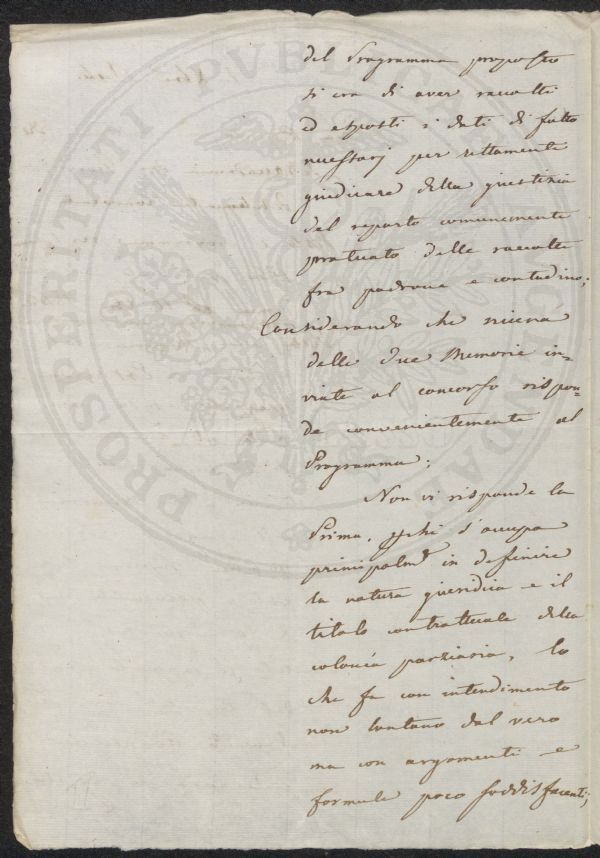 PROSPERITATI PVBLICAE AVGENDAE
del Programma proposto
si era di aver raccolti
ed esposti i dati di fatto
necessarj per rettamente
giudicare della giustizia
del reparto comunemente
praticato delle raccolte
fra padrone e contadino;
Considerando che niuna
delle due Memorie in-
viate al concorso rispon-
de convenientemente al
Programma;
Non vi risponde la
Prima, pchè s'occupa
principalmte in definire
la natura giuridica e il
titolo contrattuale della
colonia parziaria, lo
che fa con intendimento
non lontano dal vero
ma con argomenti e
formule poco soddisfacenti;